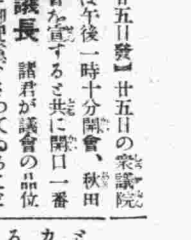 廿五日發】廿五日の衆議院
は午後一時十分開會、秋田
を宣すると共に開口一番
議長 諸君が議會の品位